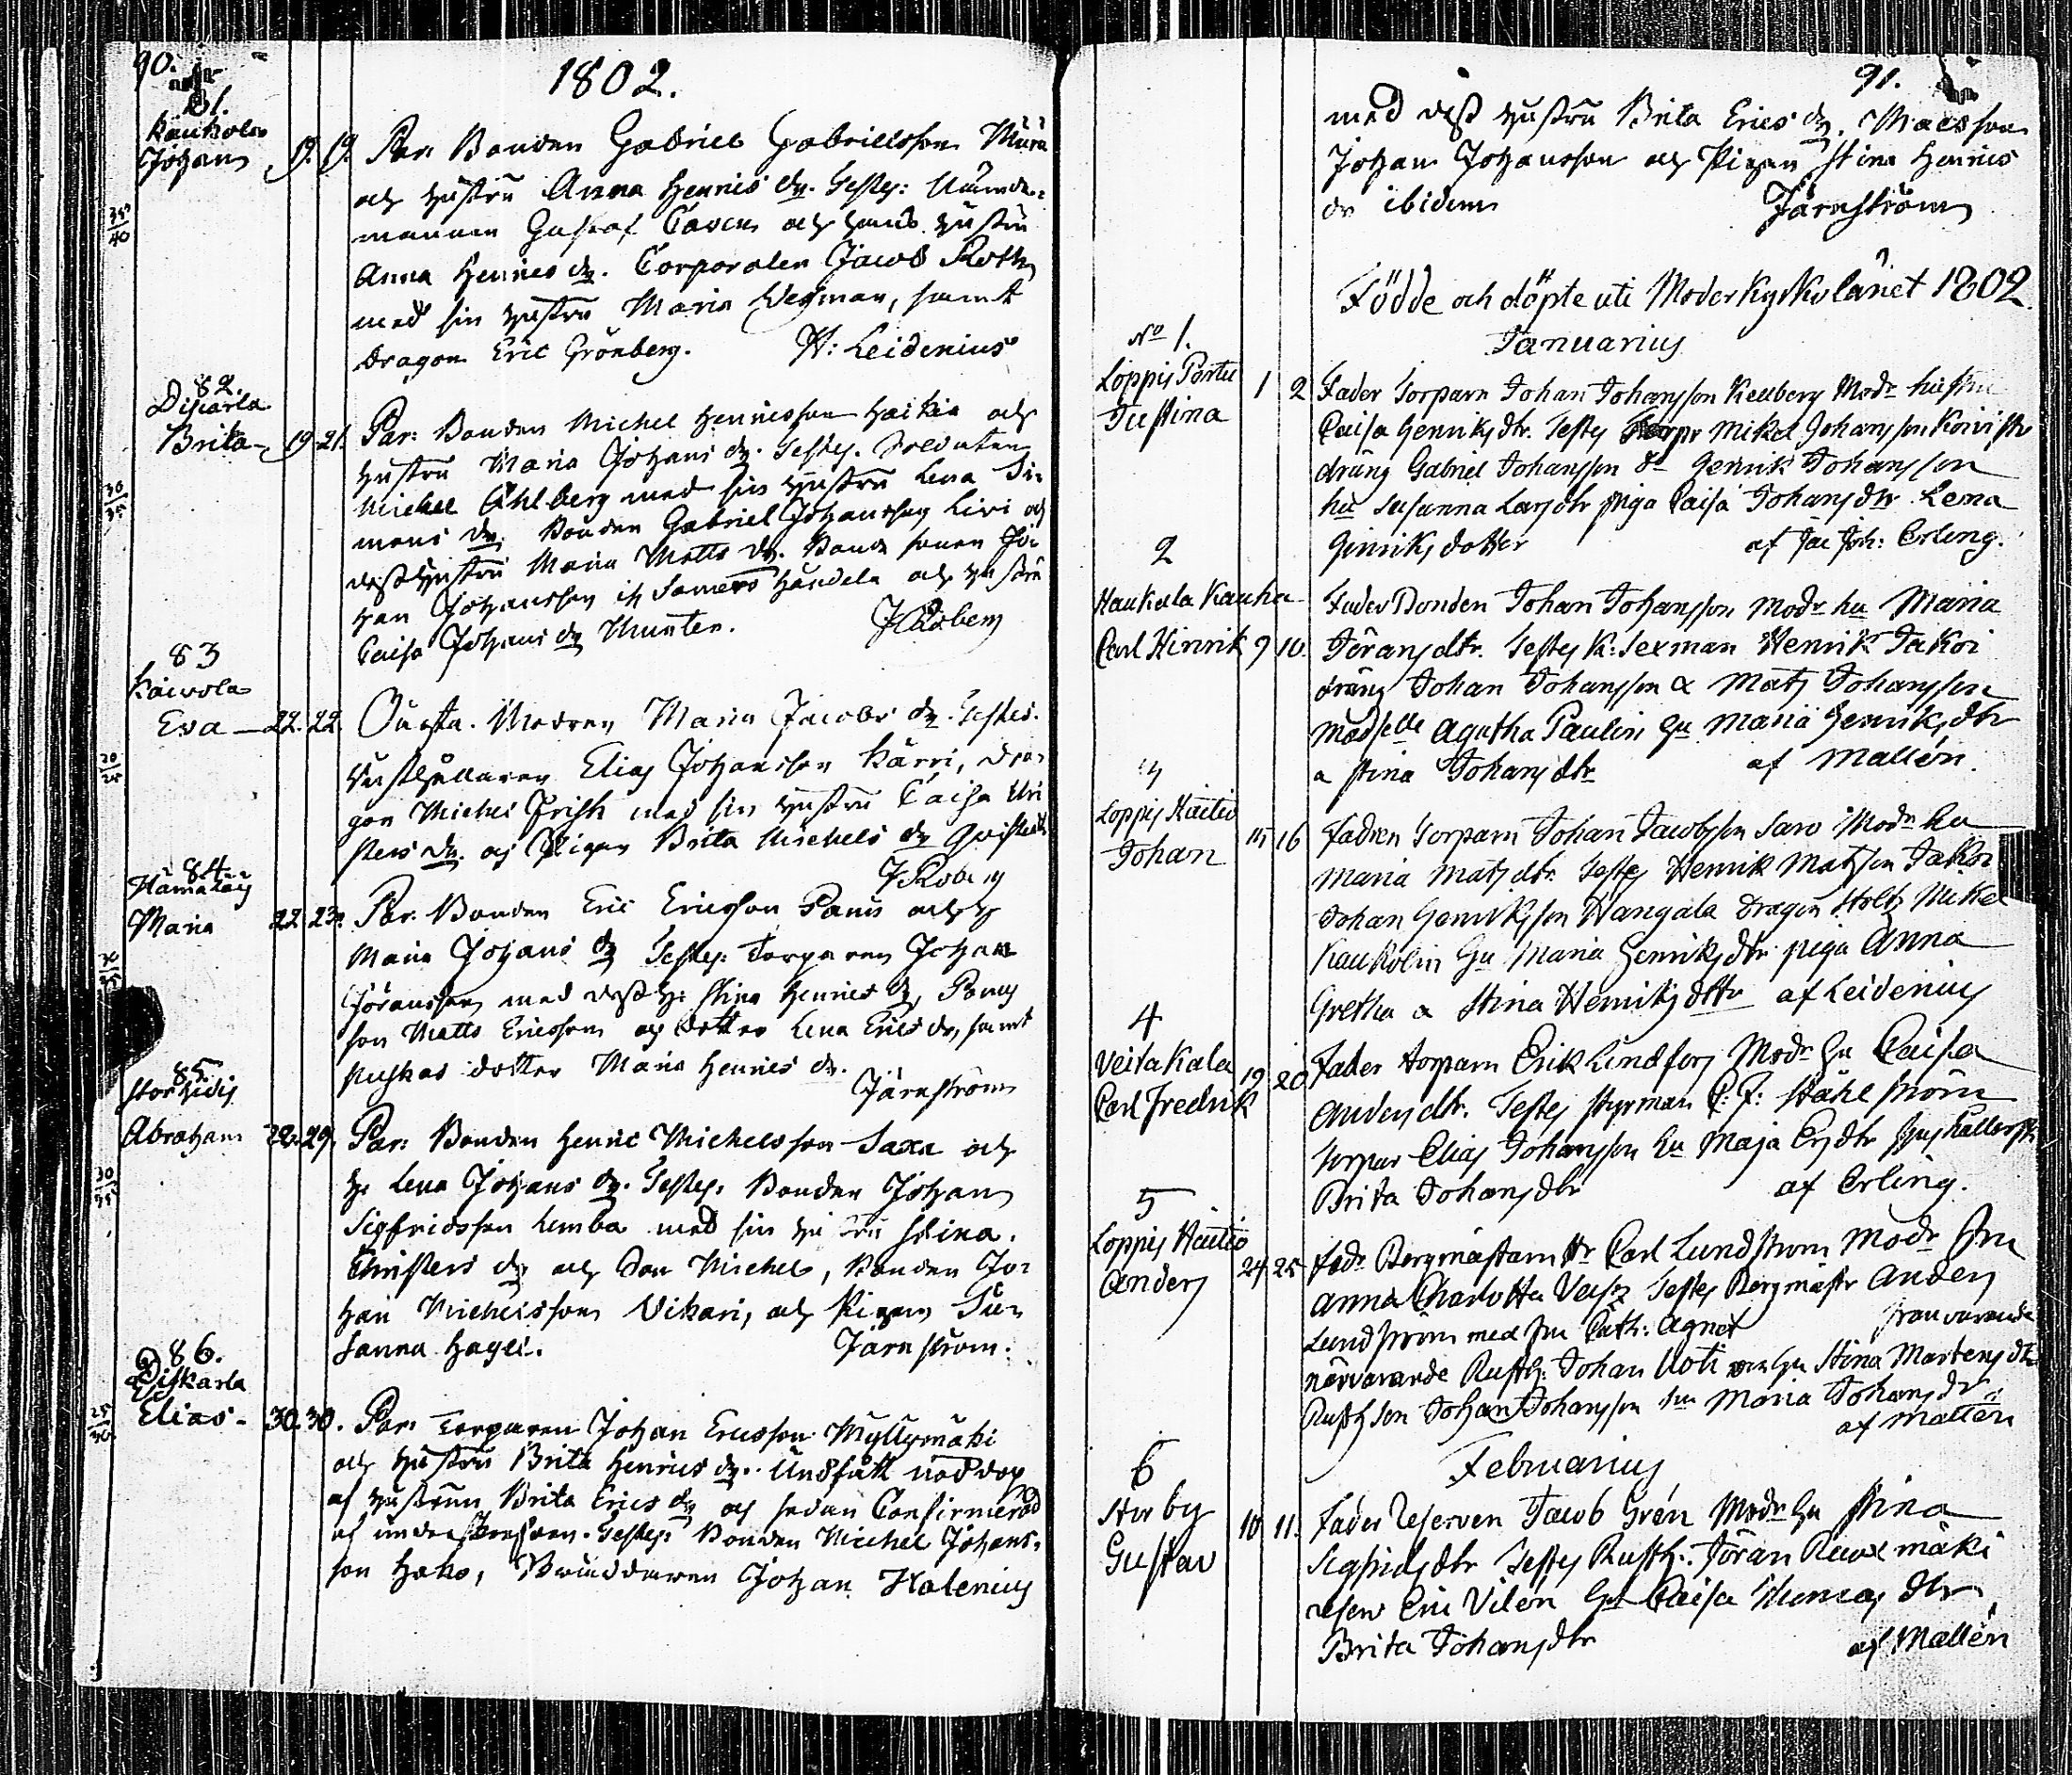 90.
1802.
81.
Kaukola
Johan 19. 19. Par. Bonden Gabriel Gabrielsson Mura
och hustru Anna Henrics dr. Testes: Nämnde-
35/40
mannen Gustaf Caven och hans hustru
Anna Henrics dr. Corporalen Jacob Roth
med sin hustru Maria Wegman, samt
Dragon Eric Grönberg. H: Leidenius
82.
Diskarla
Brita 19 21. Par: Bonden Michel Henricsson Heikkiä och
hustru Maria Johans dr. Testes. Soldaten
30/35
Michel Ahlberg med sin hustru Lena Si-
mons dr. Bonden Gabriel Johansson Livi och
dess hustru Maria Matts dr. Bonde sonen Jo-
han Johansson ifr Somero Händelä och hustru
Caisa Johans dr Munter.
83
Kaivola
Eva 22. 22. Oäcta. Modren Maria Jacobs dr. Testes.
Rusthållaren Elias Johansson Kärri, Dra-
gon Michel Frisk med sin hustru Caisa Chri
sters dr. och Pigan Brita Michels dr
84
Maria 22 23. Par. Bonden Eric Ericsson Panu och h
Maria Johans dr Testes: Torparen Johan
Jöransson med dess h: Stina Henrics dr, Panus
son Matts Ericsson och dotter Lena Erics dr, samt
dotter Maria Henrics dr.
Järnström
85.
Storhidis
Abraham 22. 29. Par: Bonden Henric Michelsson Saxa och
30/35
h: Lena Johans dr. Testes: Bonden Johan
Sigfridsson Lemba med sin hustru Stina
Christers dr och Son Michel, Bonden Jo-
han Michelsson Vikari, och Pigan Su-
sanna Hageli. Järnström.
86.
Diskarla
Elias 30. 30. Par. Torparen Johan Ericsson Myllymäki
och hustru Brita Henrics dr. Undfått nöddop
af hustrun Brita Erics dr och sedan Confirmerad
af undertecknad. Testes: Bonden Michel Johans-
son Hako, Johan Halenius
91.
med dess hustru Brita Erics dr. Maes son
Johan Johansson och Pigan Stina Henrics
dr ibidem Järnström
Födde och döpte uti Moderkyrkolänet 1802
Januarius
No 1.
Loppis Portu
Justina 1 2 Fader Torparn Johan Johansson Keuberg Modr hustru
Caisa Henriks dtr. Testes Torpr Mikel Johansson Koivisto
dräng Gabriel Johansson dr Henrik Johansson
hu Susanna Lars dtr piga Caisa Johans dtr Lena
Henriks dotter af Jac Joh: Erling.
2
Haukula Kauha
Carl Hinrik 9 10. Fader Bonden Johan Johansson Modr hu Maria
Jörans dtr. Testes K: Sexman Henrik Jakoi
dräng Johan Johansson & Mats Johansson
Madselle Agatha Paulin hu Maria Henriks dtr
& Stina Johans dtr af Mallén.
3
Loppis Kaitio
Johan 15 16 Fadren Torparn Johan Jacobsson Saro Modr hu
Maria Mats dtr. Testes Henrik Matsson Jakoi
Johan Henriksson Wangala Dragon Holtz Mikel
Kaukolin hu Maria Henriks dtr piga Anna
Gretha & Stina Henriks dtr af Leidenius
4
Veitakala
Carl Fredrik 19 20 Fader torparn Erik Lindfors Modr hu Caisa
Anders dtr. Testes Styrman C: F: Ståhlström
torpar Elias Johansson hu Maja Ers dtr
Brita Johans dtr af Erling.
5
Loppis Kaitio
Anders 24 25 Fadr Bergmästarn Hr Carl Lundström Modr fru
Anna Charlotta Testes Bergmästr Anders
Lundström med fru Cath: Agnet frånvarande
närvarande Rusth: Johan Uoti hu Stina Mårtens dtr
Rusth son Johan Johansson hu Maria Johans dr
af Mallén
Februarius
6
Stor by
Gustav 10 11. Fader Reserven Jacob Grén Modr hu Stina
Sigfrids dtr Testes Rusth: Jöran mäki
reserv Eric Vilén hu Caisa Thomas dtr
Brita Johans dtr af Mallén